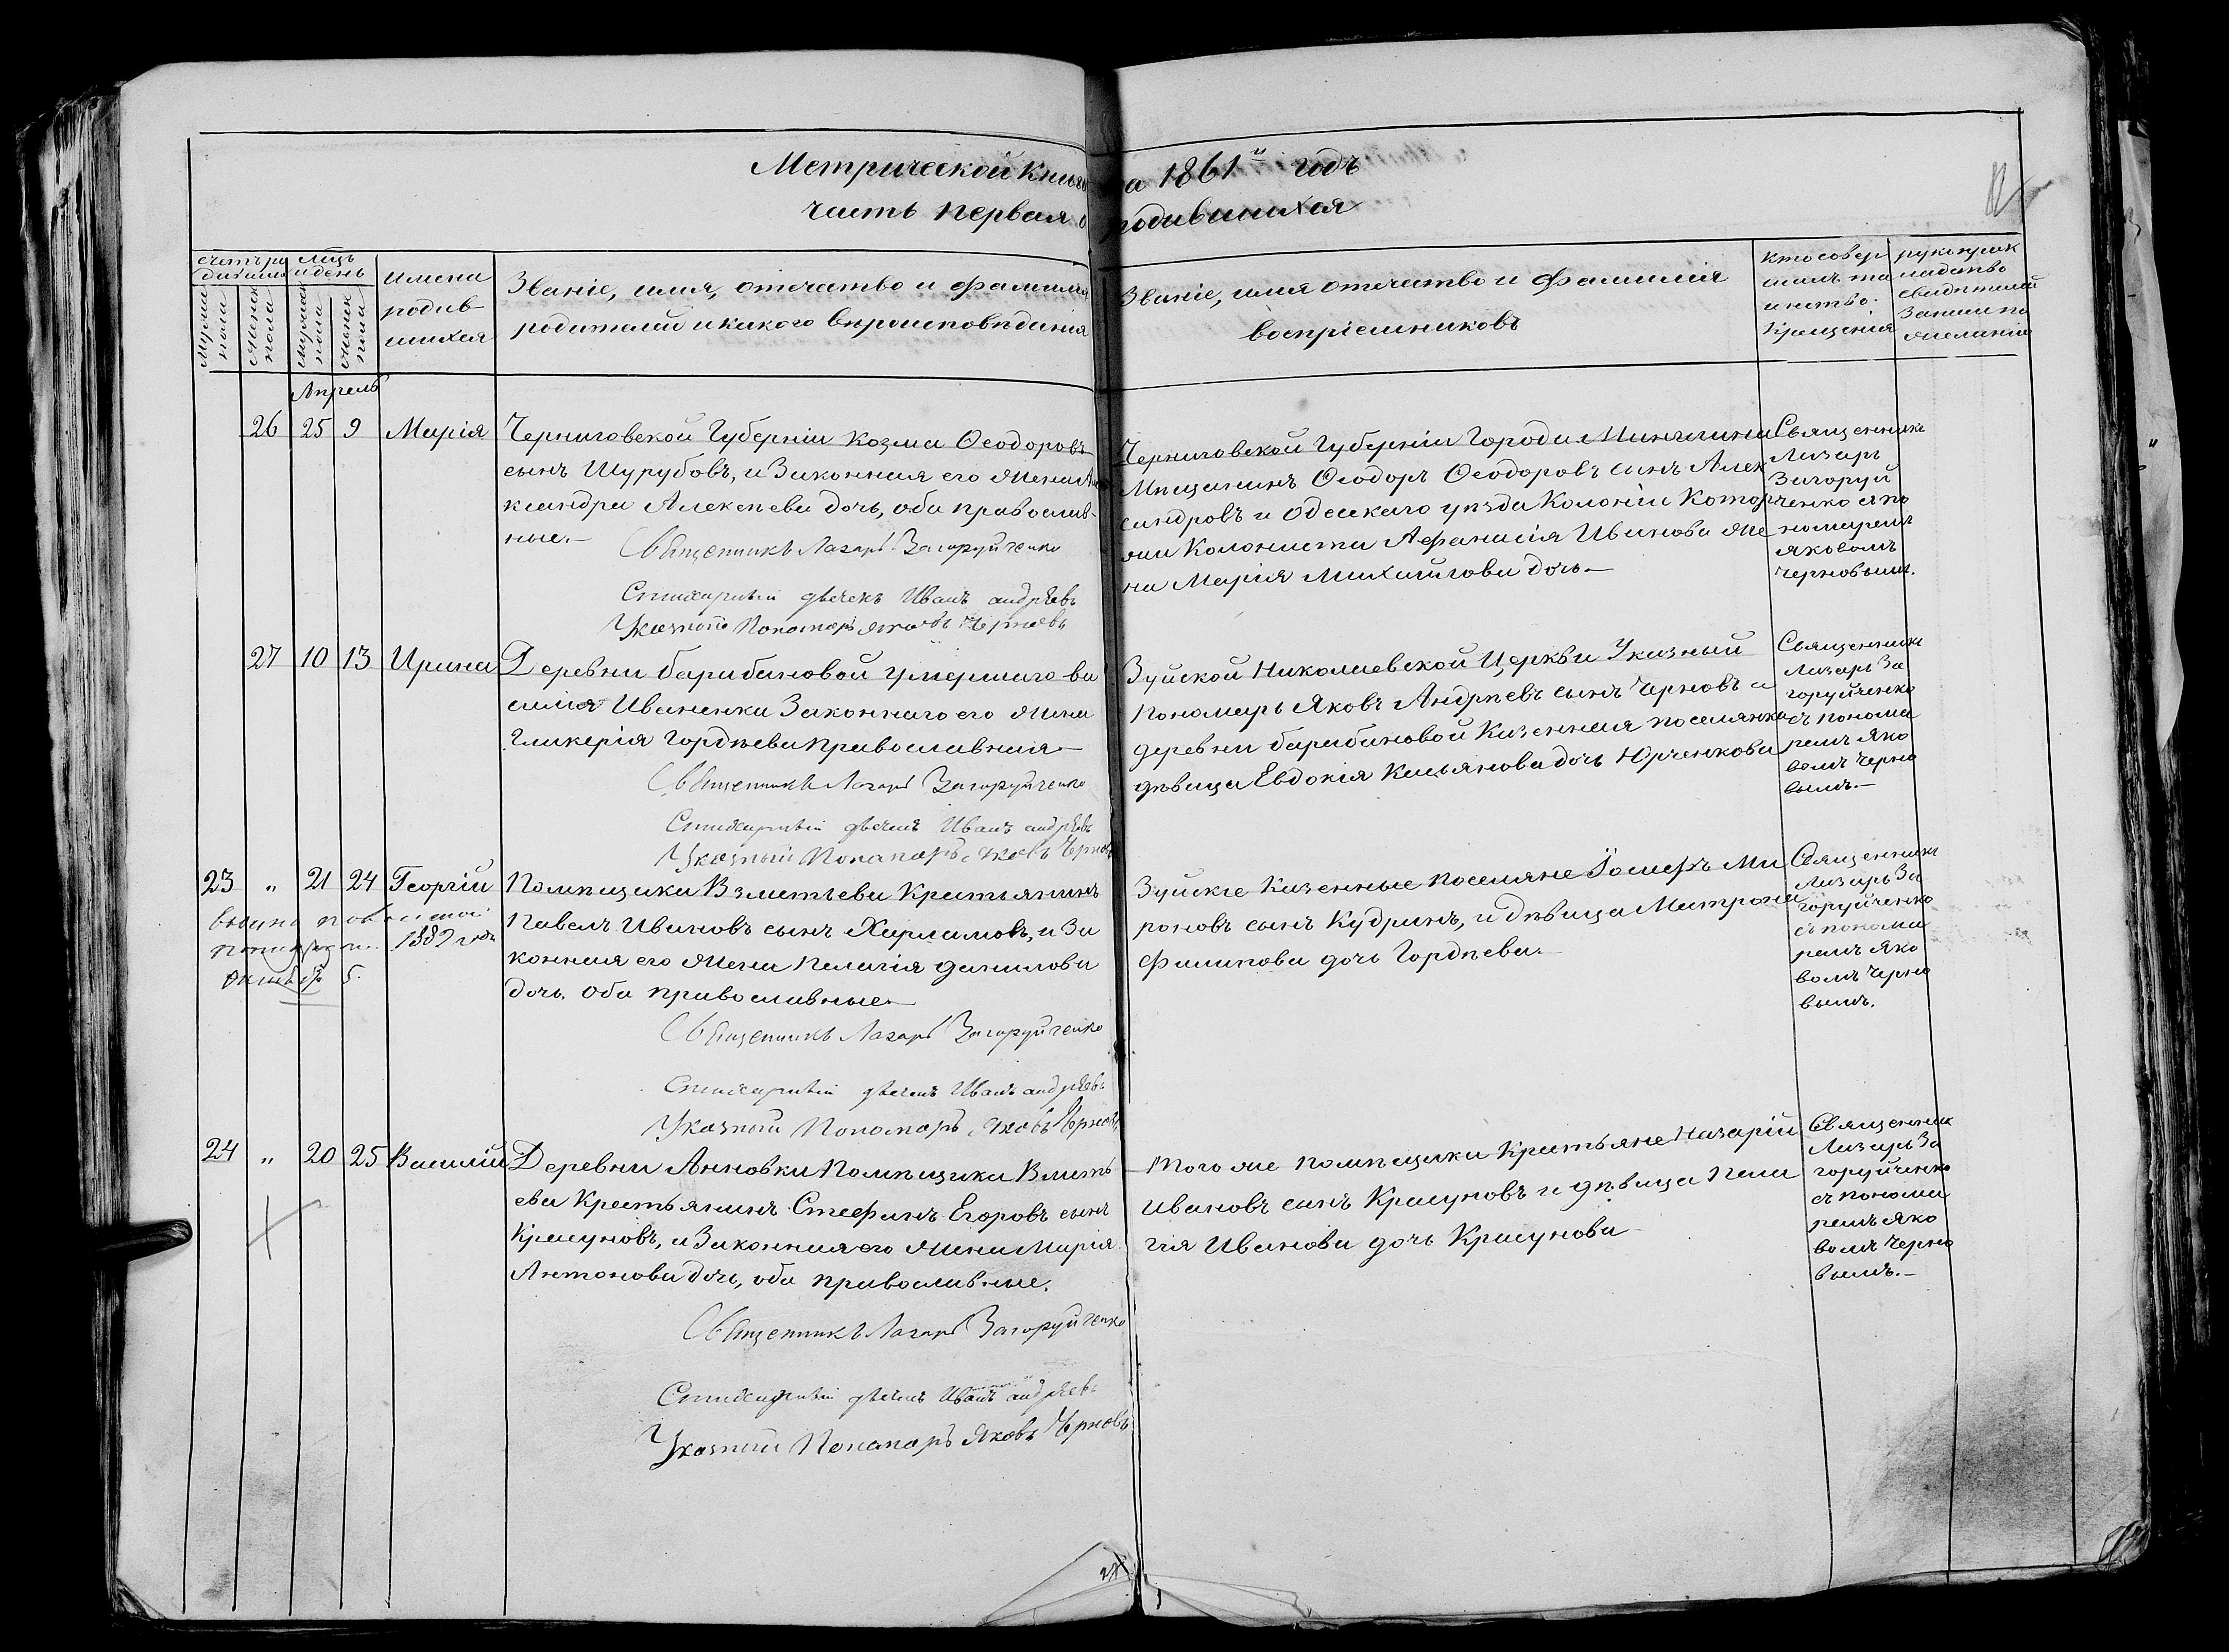 Метрической книги на 1861й годъ
часть первая о родившихся
счетъ ро
дившихся
Мужеск
пола
Женск
пола
и день
Мужеск
пола
Женск
пола
имена
родив
шихся
Званіе, имя, отечество и фамилія
родителей и какого вѣроисповѣданія
Званіе, имя отечество и Фамилія
воспріемниковъ
Кто совер
шалъ та
инство
Крещенія
рукоприк
ладство
свидѣтелей
записи по
желанію
Апрель
26 25 9 Марія
Черниговской Губерніи Козма Ѳеодоровъ
сынъ Шурубовъ, и Законная его жена Але
ксандра Алексѣева дочь, оба православ-
ные.—
Священникъ Лазарь Загоруйченко
Стихарный дьячекъ Иванъ андрѣевъ
Указный Пономарь Яковъ Черновъ
Черниговской Губерніи Города
Мѣщанинъ Ѳеодоръ Ѳеодоровъ сынъ Алек
сандровъ и Одесскаго уѣзда Колоніи
Колониста Афанасія Иванова же
на Марія Михайлова дочь—
Священникъ
Лазарь
Загоруй
ченко съ по
номаремъ
Яковомъ
Черновымъ.
27 10 13 Ирина
Деревни барабановой умершаго Ва
силія Иваненка Законнаго его жена
Гликерія Гордѣева православная—
Священникъ Лазарь Загоруйченко
Стихарный дьячекъ Иванъ андрѣевъ
Указный Пономарь Яковъ Черновъ
Зуйской Николаевской Церкви Указный
Пономарь Яковъ Андрѣевъ сынъ Черновъ и
деревни барабановой Казенная поселянка
дѣвица Евдокія Касьянова дочь Юрченкова
Священникъ
Лазарь За
горуйченко
съ понома
ремъ Яко
вомъ Черно
вымъ.—
23 " 21 24 Георгій
1889 года
октября 5.
Помѣщика Взметьева Крестьянинъ
Павелъ Ивановъ сынъ Харламовъ, и За
конная его жена Пелагія Данилова
дочь, оба православные—
Священникъ Лазарь Загоруйченко
Стихарный дьячекъ Иванъ андрѣевъ
Указный Пономарь Яковъ Черновъ
Зуйскіе Казенные поселяне Іосифъ Ми
роновъ сынъ Кудринъ, и дѣвица Матрона
Филипова дочь Гордѣева—
Священникъ
Лазарь За
горуйченко
съ понома
ремъ Яко
вомъ Черно
вымъ.
24 " 20 25 Василій
Деревни Анновки Помѣщика Взметь
ева Крестьянинъ Стефанъ Егоровъ сынъ
Красуновъ, и Законная его жена Марія
Антонова дочь, оба православные.
Священникъ Лазарь Загоруйченко
Стихарный дьячекъ Иванъ андрѣевъ
Указный Пономарь Яковъ Черновъ
Того же помѣщика Крестьяне Назарій
Ивановъ сынъ Красуновъ и дѣвица Пела
гія Иванова дочь Красунова
Священникъ
Лазарь За
горуйченко
съ понома
ремъ Яко
вомъ Черно
вымъ.—